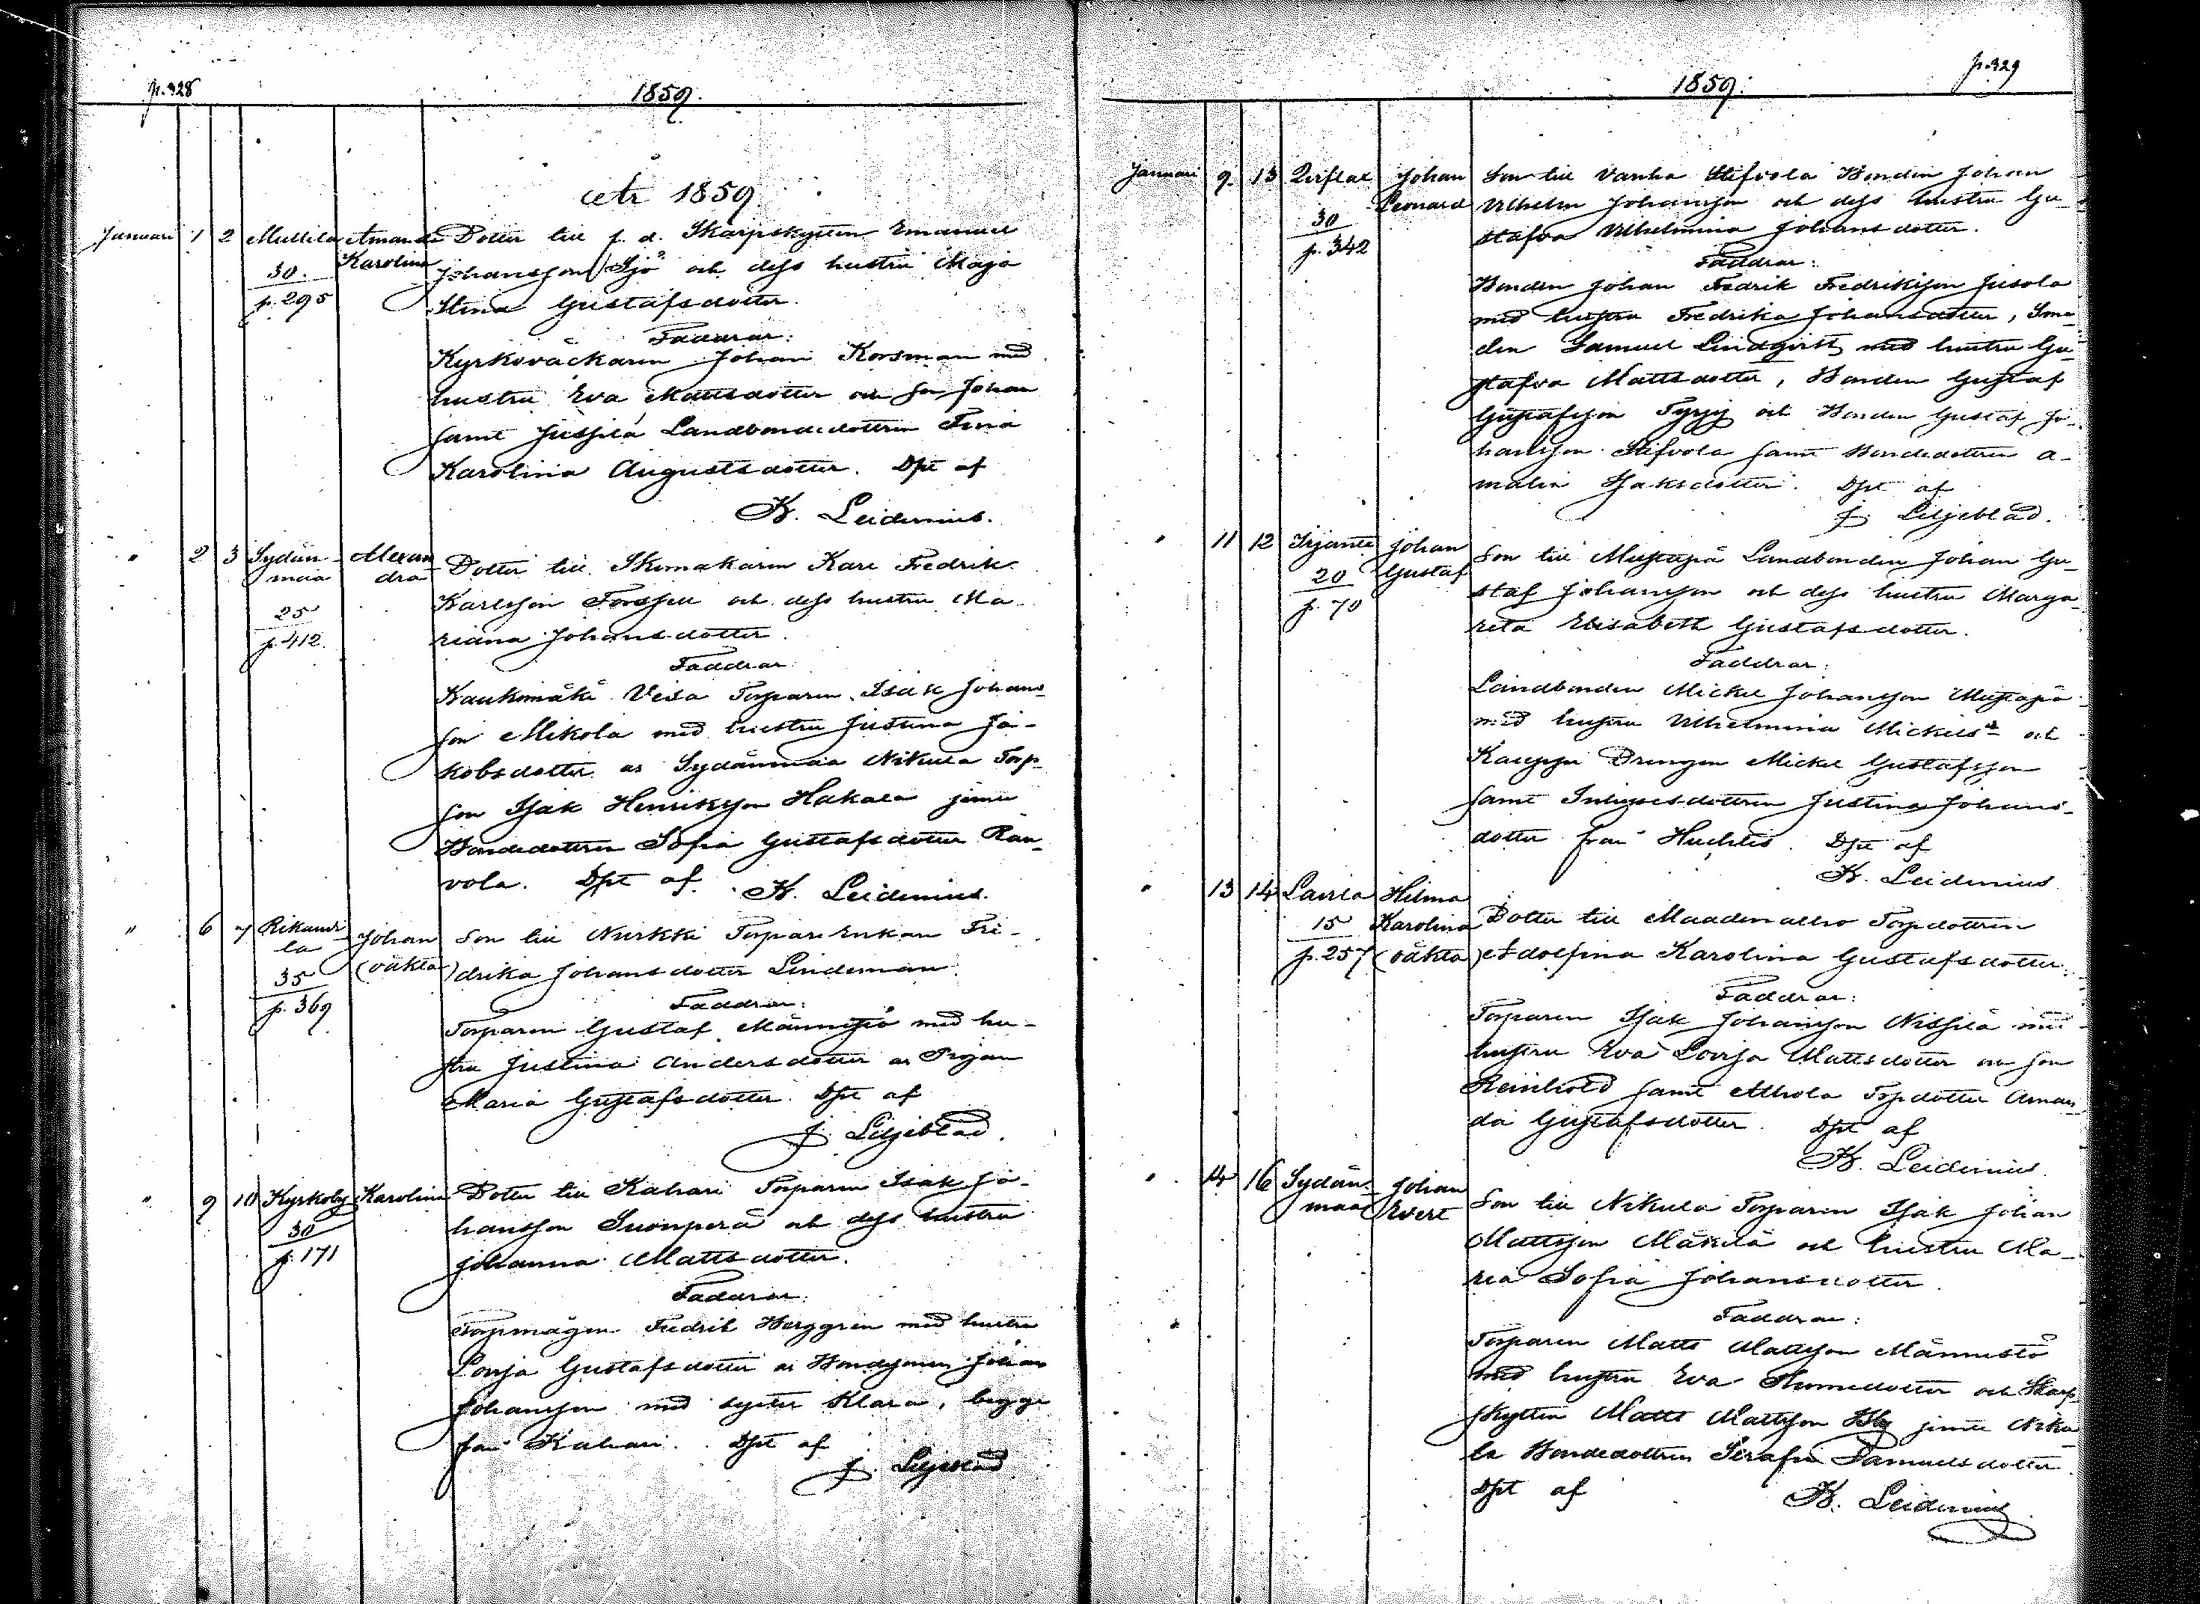 p. 328
1859.
år 1859.
Januari 1 2 Mullila Amanda Dotter till f. d. Skarpskytten Emanuel
30. Karolina Johansson Sjö och dess hustru Maja
p. 295 Stina Gustafsdotter.
Faddrar:
Kyrkoväckaren Johan Korsman med
hustru Eva Mattsdotter och son Johan
samt Jussila Landbondedottren
Karolina Augustsdotter. Dpt af
K. Leidenius.
" 2 3 Sydän- Alexan Dotter till Skomakaren Karl Fredrik
maa dra Karlsson Forssell och dess hustru Ma-
25 riana Johansdotter.
p. 412. Faddrar:
Kaukomäki Torparen Isak Johans-
son Mikola med hustru Justina Ja-
kobsdotter Sydänmaa Nikula Torp-
son Isak Henriksson Hakala jemte
Bondedottren Sofia Gustafsdotter Ran-
vola. Dpt af K. Leidenius.
" 6 7 Rikand- Johan Son till Nurkki Torpar Enkan Fre-
la (oäkta) drika Johansdotter Lindeman.
35 Faddrar:
p. 369 Torparen Gustaf Männistö med hu-
stru Justina Andersdotter Pigan
Maria Gustafsdotter. Dpt af
J. Liljeblad.
" 9 10 Kyrkoby Karolina Dotter till Kahari Torparen Isak Jo-
30 hansson Suonperä och dess hustru
p. 171 Johanna Mattsdotter.
Faddrar:
Torpmågen Fredrik Berggren med hustru
Lovisa Gustafsdotter Bondsonen Johan
Johansson med syster Klara, begge
från Kahari. Dpt af
J. Liljeblad
p. 329
1859.
Januari 9. 13 Johan Son till Vanha Stifvola Bonden Johan
30 Leonard Vilhelm Johansson och dess hustru Gu-
p. 342 stafva Vilhelmina Johansdotter.
Faddrar:
Bonden Johan Fredrik Fredriksson
med hustru Fredrika Johansdotter, Sme-
den Samuel Lindqvist med hustru Gu-
stafva Mattsdotter, Bonden Gustaf
Gustafsson och Bonden Gustaf Jo-
hansson Stifvola samt Bondedottren A-
malia Isaksdotter. Dpt af
J. Liljeblad.
" 11 12 Irjanta Johan Son till Mustapä Landbonden Johan Gu-
20 Gustaf staf Johansson och dess hustru Marga-
p. 70 reta Elisabeth Gustafsdotter.
Faddrar:
Landbonden Mickel Johansson Mustapä
med hustru Vilhelmina Mickelsdr och
Kauppi Drengen Mickel Gustafsson
samt Inhysesdottren Justina Johans-
dotter från Huchtis. Dpt af
K. Leidenius
" 13 14 Lauria Hilma Dotter till Maadenalho Torpdottren
15 Karolina Adolfina Karolina Gustafsdotter.
p. 257 (oäkta) Faddrar:
Torparen Isak Johansson Nissilä med
hustru Eva Lovisa Mattsdotter son
Reinhold samt Alhola Torpdotter Aman-
da Gustafsdotter. Dpt af
K. Leidenius.
" 14 16 Sydän- Johan Son till Nikula Torparen Isak Johan
maa Evert Mattsson Mäkilä och hustru Ma-
ria Sofia Johansdotter.
Faddrar:
Torparen Matts Mattsson Männistö
med hustru Eva och Skarp-
skytten Matts Mattsson jemte Niku-
la Bondedottren Serafia Samuelsdotter.
Dpt af K. Leidenius